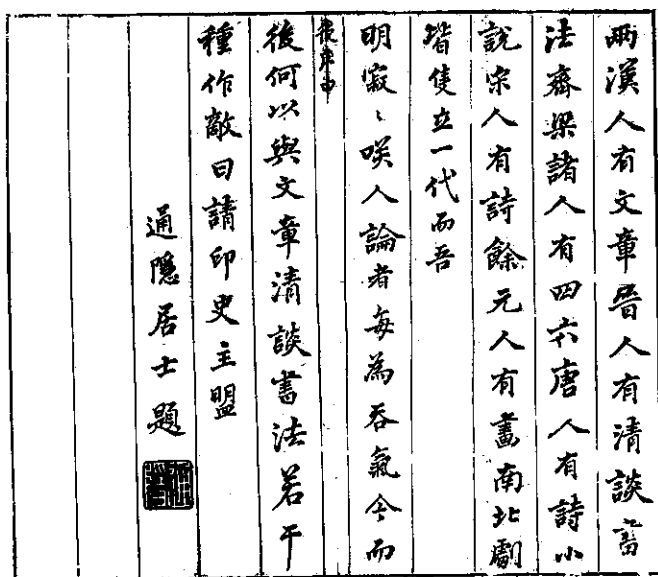 兩漢人有文章晉人有清談書
法齊梁諸人有四六唐人有詩小
說宋人有詩餘元人有畫南北劇
皆隻立一代而吾
明寂〻咲人論者每為吞氣今而
後何以與文章清談書法若干
種作敵曰請印史主盟
通隱居士題